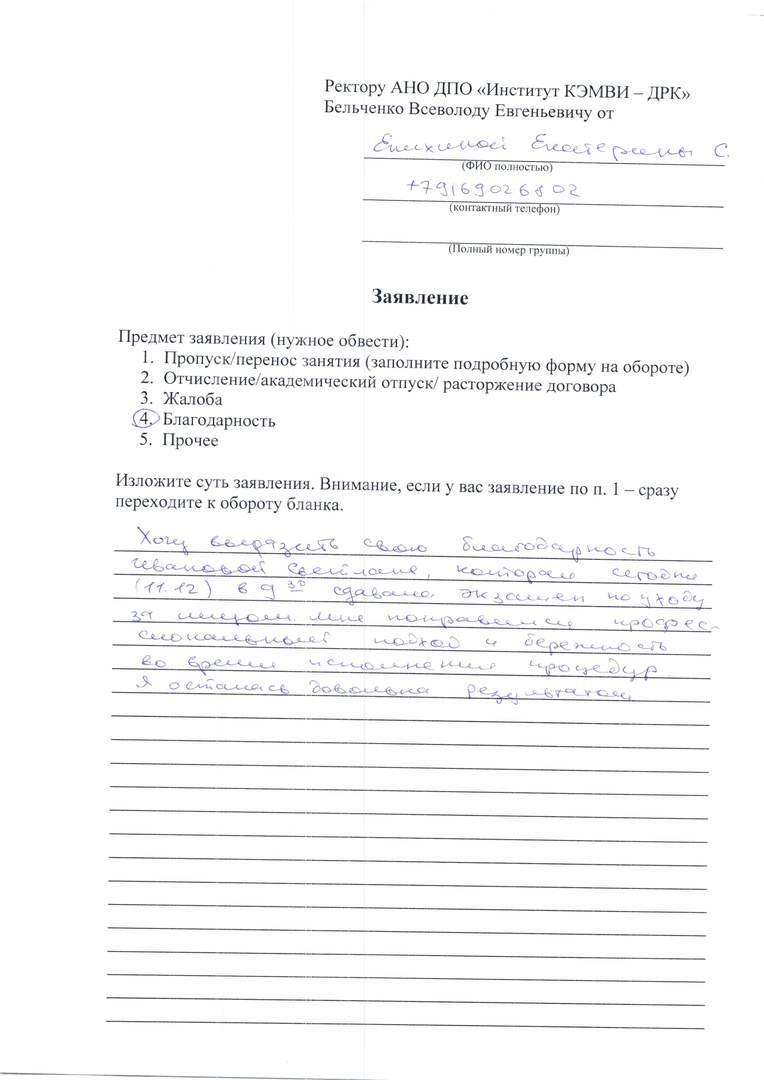 Ректору АНО ДПО «Институт КЭМВИ – ДРК»
Бельченко Всеволоду Евгеньевичу от
Екатерины С.
(ФИО полностью)
+79169026802
(контактный телефон)
(Полный номер группы)
Заявление
Предмет заявления (нужное обвести):
1. Пропуск/перенос занятия (заполните подробную форму на обороте)
2. Отчисление/академический отпуск/ расторжение договора
3. Жалоба
4. Благодарность
5. Прочее
Изложите суть заявления. Внимание, если у вас заявление по п. 1 – сразу
переходите к обороту бланка.
Хочу выразить свою благодарность
Ивановой Светлане, которая сегодня
(11.12) в 9 30 сдавала экзамен по уходу
за лицом. Мне понравился профес-
сиональный подход и бережность
во время исполнения процедур
Я осталась довольна результатом